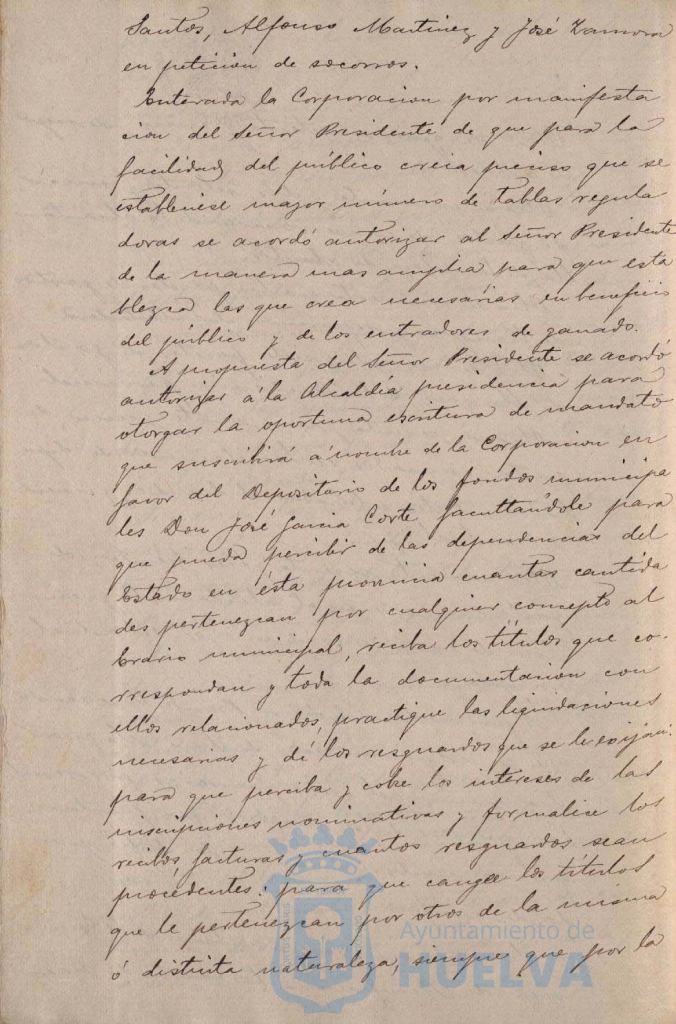 Santos, Alfonso Martinez y José Zamora
en peticion de socorros.
Enterada la Corporacion por manifesta
cion del Señor Presidente de que para la
facilidad del público creia preciso que se
estableciese mayor número de tablas regula
doras se acordó autorizar al Señor Presidente
de la manera mas amplia para que esta
blezca las que crea necesarias en beneficio
del público y de los entradores de ganado.
A propuesta del Señor Presidente se acordó
autorizar á la Alcaldía presidencia para
otorgar la oportuna escritura de mandato
que suscribirá á nombre de la Corporacion en
favor del Depositario de los fondos municipa
les Don José Garcia Corte facultandole para
que pueda percibir de las dependencias del
Estado en ésta provincia cuantas cantida
des pertenezcan por cualquier concepto al
Erario municipal, reciba los títulos que co-
rrespondan y toda la documentacion con
ellos relacionados, practique las liquidaciones
necesarias y dé los resguardos que se le exijan:
para que perciba y cobre los intereses de las
inscripciones nominativas y formalice los
recibos, facturas y cuantos resguardos sean
procedentes: para que cangee los títulos
que le pertenezcan por otros de la misma
ó distinta naturaleza, siempre que por la
Ayuntamiento de
HUELVA